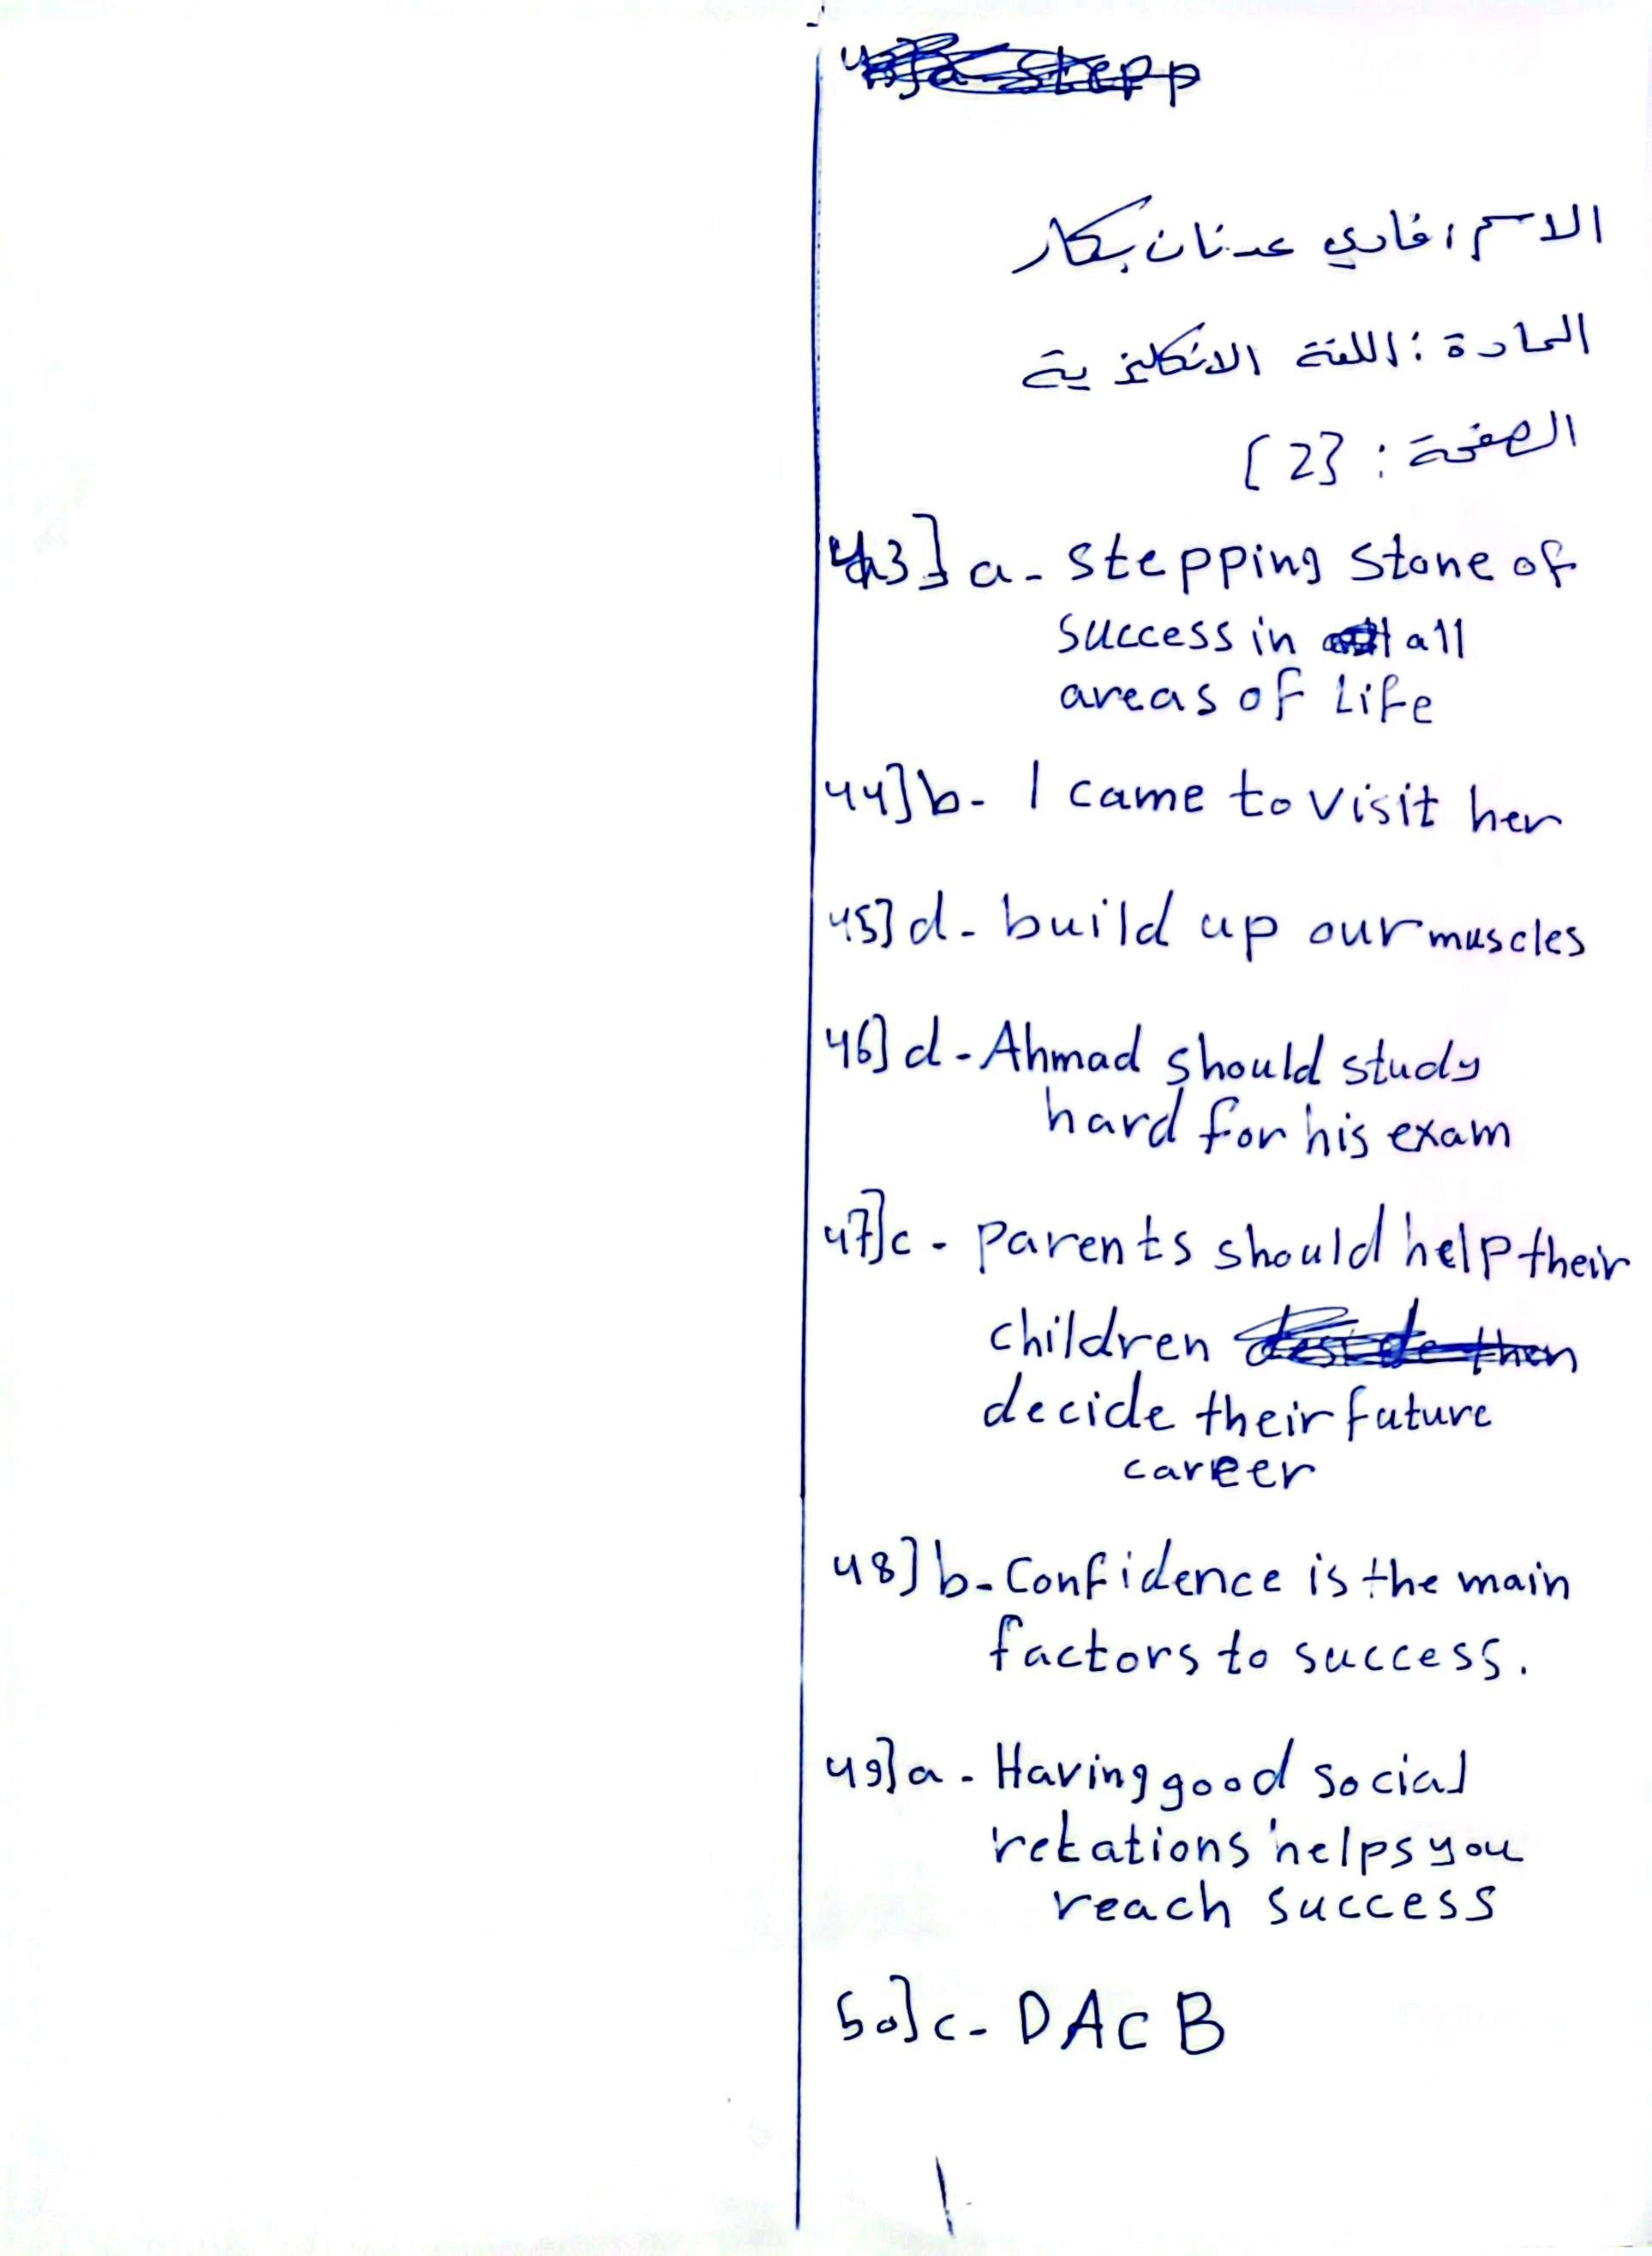 الاسم : فادي عدنان بكار
المادة : اللغة الانكليزية
الصفحة : {2}
43] a- stepping stone of
success in all
areas of Life
44] b- I came to visit her
45] d- build up our muscles
46] d- Ahmad should study
hard for his exam
47] c- parents should help their
children
decide their future
career
48] b- Confidence is the main
factors to success.
49] a- Having good social
relations helps you
reach success
50] c- DACB